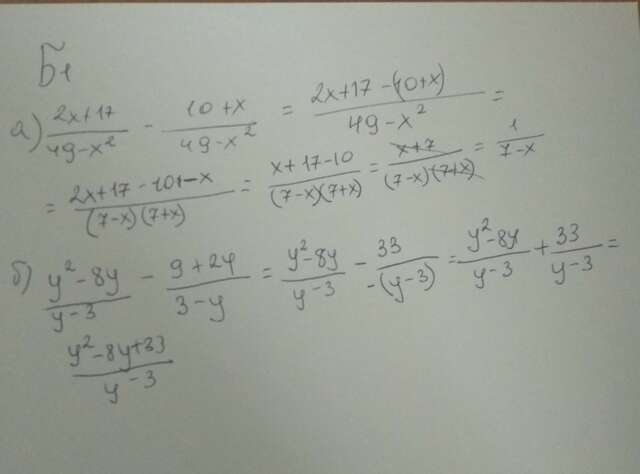 Б1
а) (2x+17)/(49-x²) - (10+x)/(49-x²) = (2x+17-(10+x))/(49-x²) =
= (2x+17-10-x)/((7-x)(7+x)) = (x+17-10)/((7-x)(7+x)) = (x+7)/((7-x)(7+x)) = 1/(7-x)
б) (y²-8y)/(y-3) - (9+24)/(3-y) = (y²-8y)/(y-3) - 33/(-(y-3)) = (y²-8y)/(y-3) + 33/(y-3) =
(y²-8y+33)/(y-3)